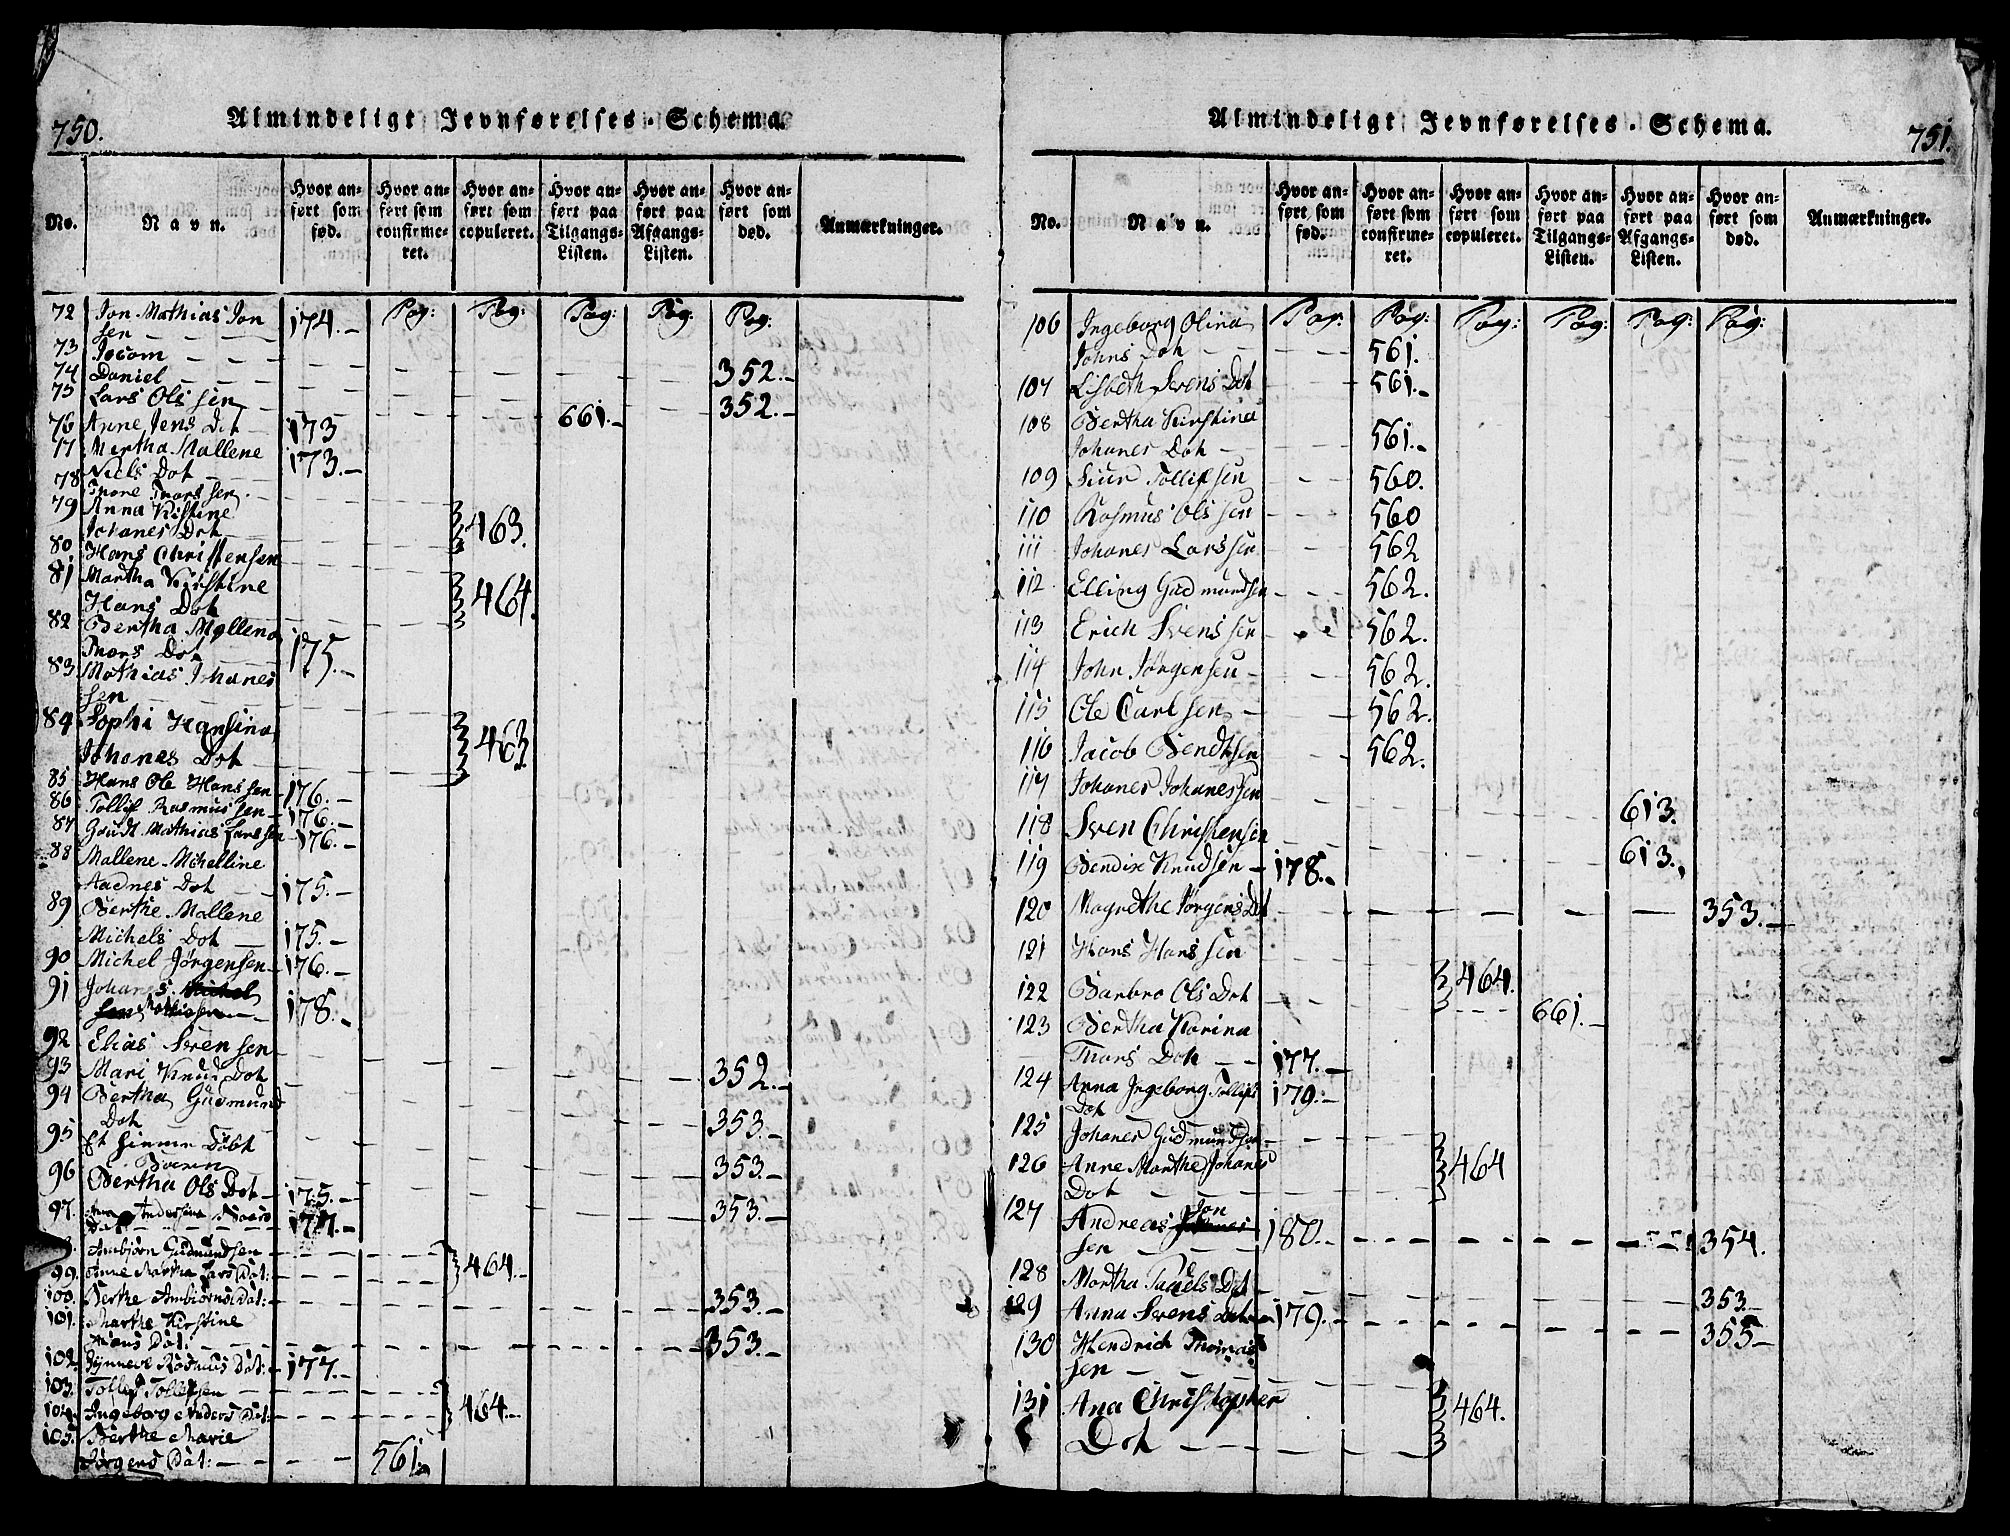 750.
Almindeligt Jevnførelses-Schema.
No.
Navn.
Hvor an-
ført som
fød.
Hvor an-
ført som
confirme-
ret.
Hvor an-
ført som
copuleret.
Hvor an-
ført paa
Tilgangs-
Listen.
Hvor an-
ført paa
Afgangs-
Listen.
Hvor an-
ført som
død.
Anmærkninger.
72 Jon Mathias Jon 174.- Pag: Pag: Pag: Pag. Pag:
sen
73 Jocom
74 Daniel 352.-
75 Lars Olssen 352.-
76 Anne Jens Dot 173 661.-
77 Mertha Mallene
Niels Dot 173.-
78 Thore Thorssen
79 Anna Kistine
Johanes Dot 463.
80 Hans Christensen
81 Martha Kirstine
Hans Dot 464.
82 Bertha Mallena
Thors Dot 175.-
83 Mathias Johanes
sen
84 Sophi Hansina
Johanes Dot 463.
85 Hans Ole Hanssen 176.-
86 Tollif Rasmussen 176.-
87 Gundt Mathias Larssen 176.-
88 Mallene Michelline
Aadnes Dot 175.-
89 Berthe Mallene
Michels Dot 175.-
90 Michel Jørgensen 176.-
91 Johanes Michel
178.-
92 Elias Svensen
93 Mari Knud Dot 352.-
94 Bertha Gudmund
Dot 353.-
95 Et hiemme Døbt
Barn 353.-
96 Bertha Ols Dot 175.-
353.-
97. Andersina
177.-
Ambjørn Gudmundsen
464.-
99. Anne Martha Lars Dat:
100. Berthe Ambiørns Dat: 353.-
101. Marthe Kirstine
Dat: 353.-
102. Synneve Rasmus Dat: 177.-
103. Tollef Tollefsen
464.-
104. Ingeborg Anders Dat:
105. Berthe Marie
Jørgens Dat: 561.
751.
Almindeligt Jevnførelses-Schema.
No.
Navn.
Hvor an-
ført som
fød.
Hvor an-
ført som
confirme-
ret.
Hvor an-
ført som
copuleret.
Hvor an-
ført paa
Tilgangs-
Listen.
Hvor an-
ført paa
Afgangs-
Listen.
Hvor an-
ført som
død.
Anmærkninger.
106 Ingeborg Olina Pag. Pag: Pag: Pag: Pag: Pag:
Johns Dot 561.
107 Lisbeth Svens Dot 561.-
108 Bertha Kirstina
Johanes Dot 561.-
109 Siur Tollifsen 560.
110 Rasmus Olssen 560
111 Johanes Larssen 562
112 Elling Gudmundsen 562.
113 Erich Svenssen 562.
114 John Jørgensen 562.
115 Ole Carlsen 562.
116 Jacob Bendtsen 562.
117 Johanes Johanessen 613.
118 Sven Christensen 613.
119 Bendix Knudsen 178.-
120 Magrethe Jørgens Dot 353.-
121 Hans Hanssen
464.
122 Barbro Ols Dot 661.-
123 Bertha Karina
Thors Dot 177.-
124 Anna Ingeborg Tollifs 179.-
Dot
125 Johanes Gudmundsen
464
126 Anne Marthe Johanes
Dot
127 Andreas Jon
sen 180.- 354.
128 Martha Dot 353.-
129 Anna Svens Dot 179.- 355-
130 Hendrich Thomas
sen
464.
131 Ana Christopher
Dot